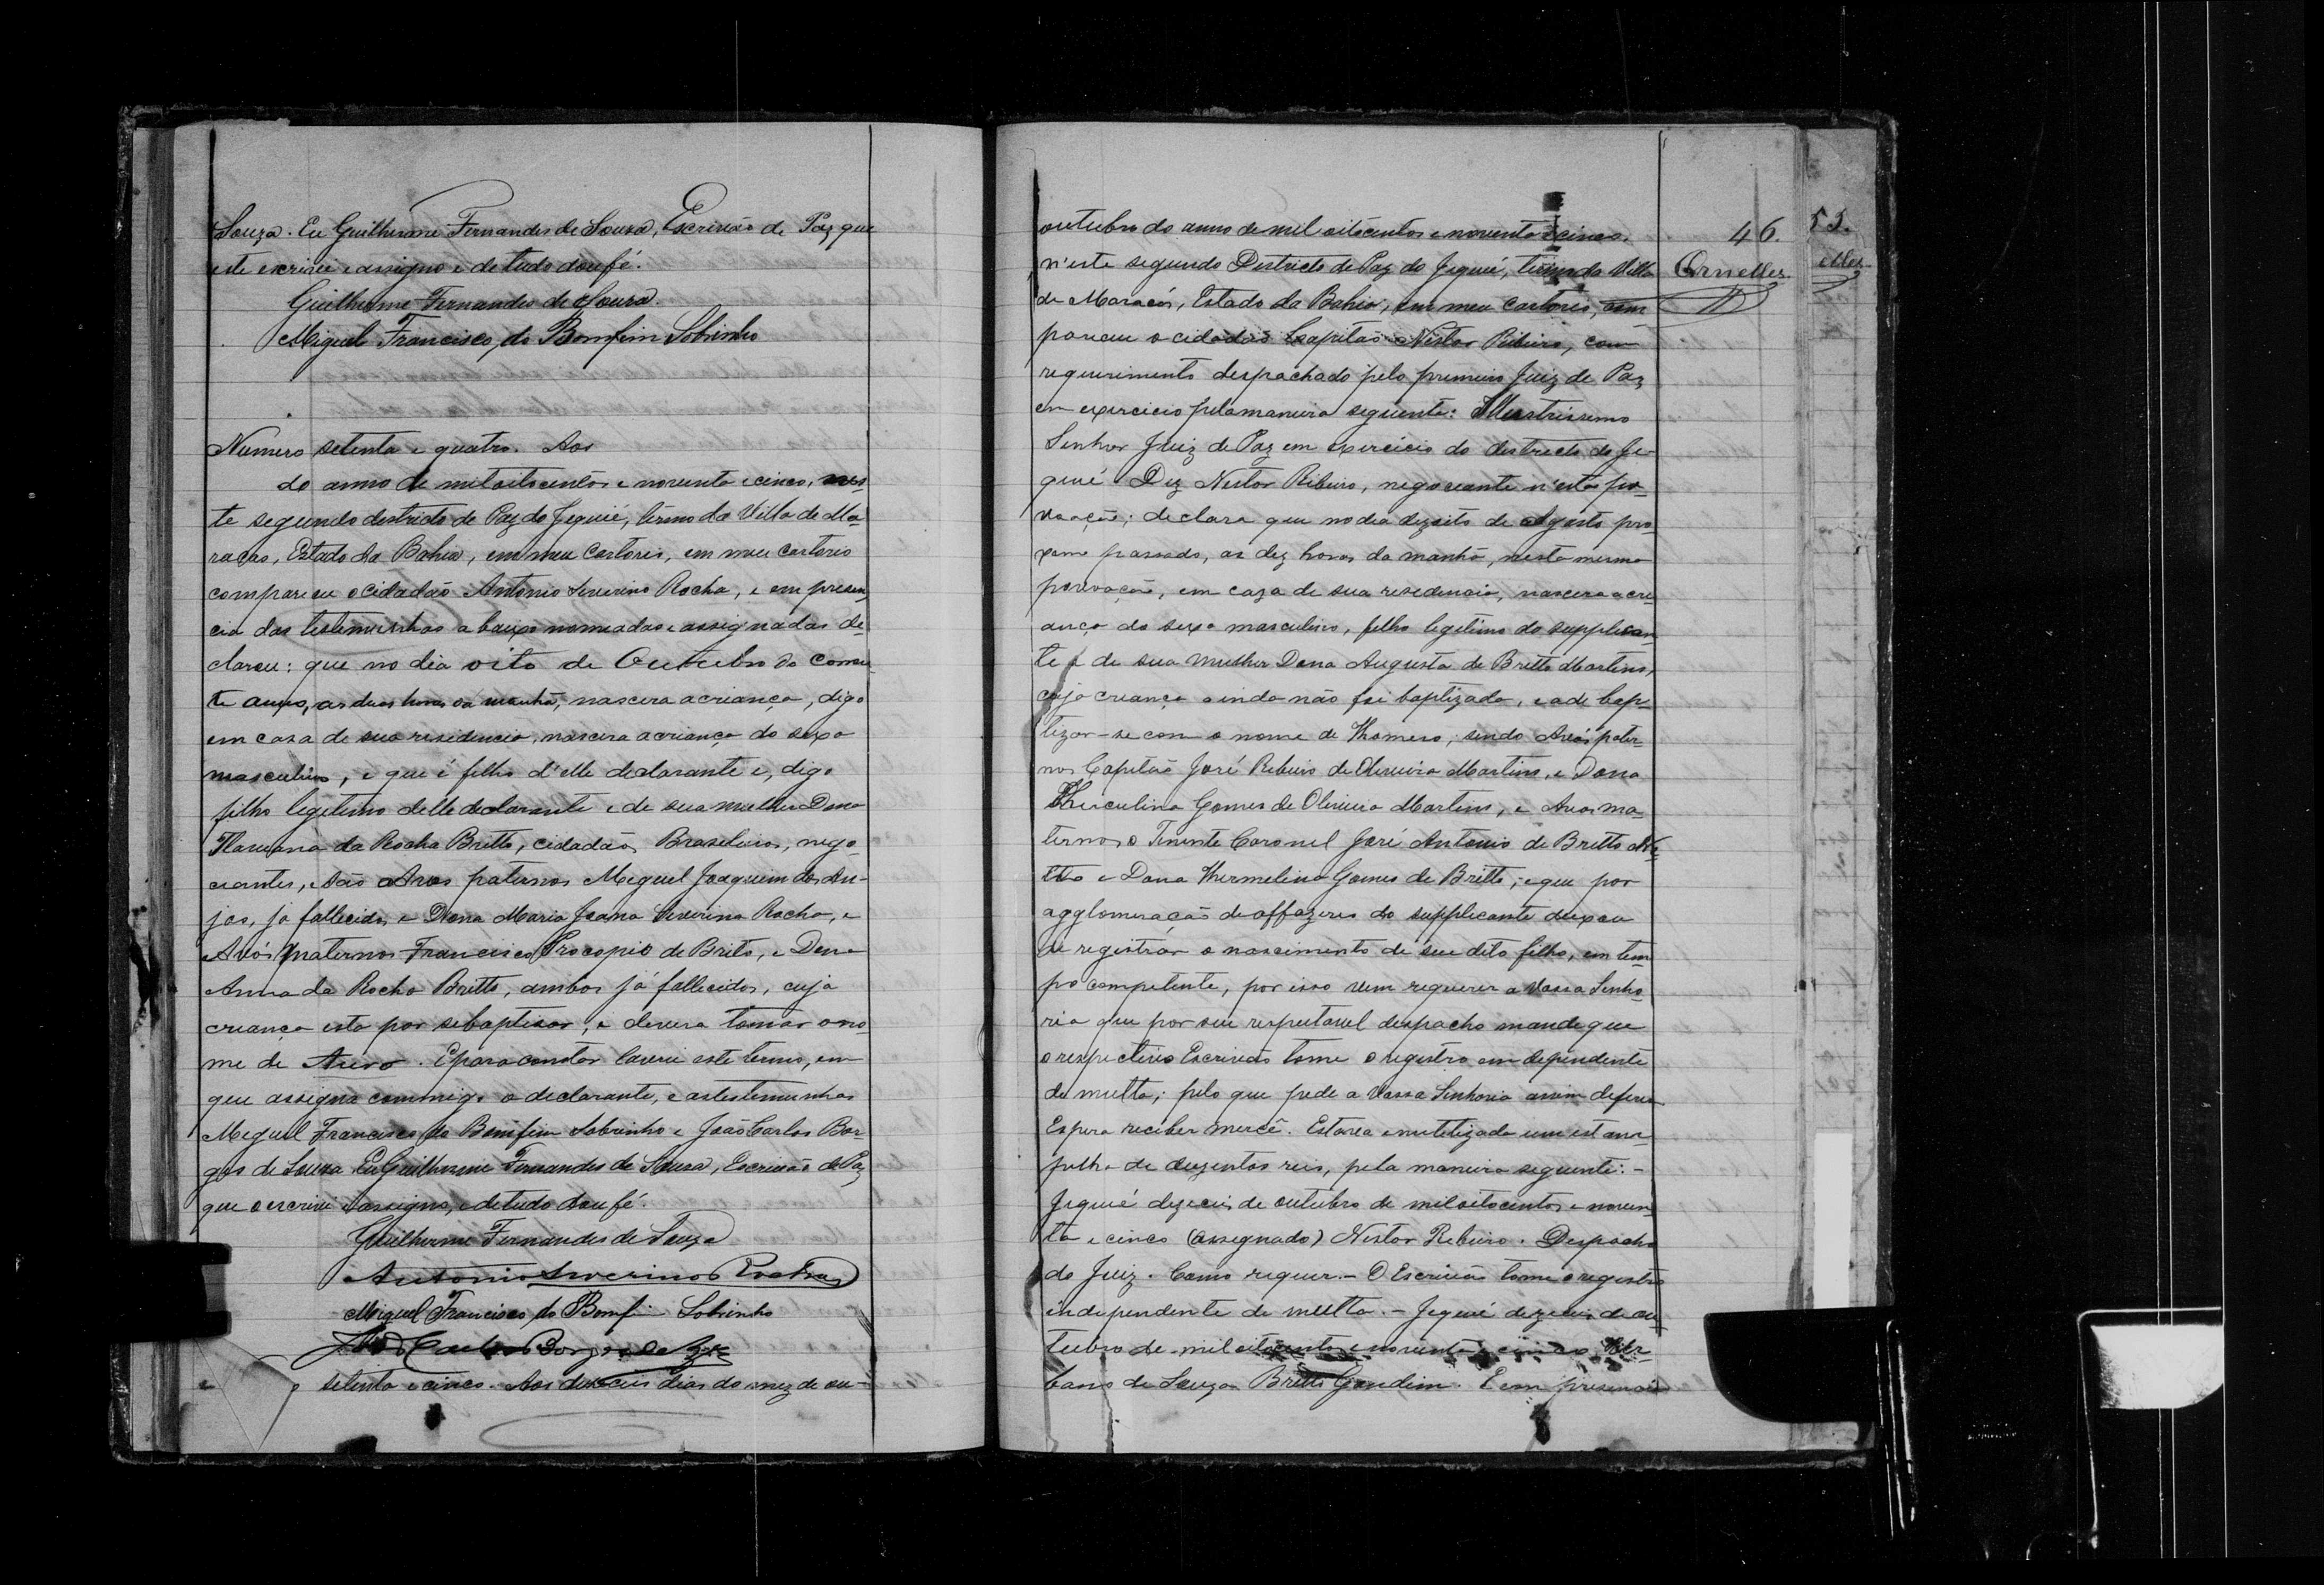 Souza. Eu Guilherme Fernandes de Souza, Escrivão de Paz que
este escrivi e assigno e de tudo dou fé.
Guilherme Fernandes de Souza.
Miguel Francisco do Bomfim Sobrinho
Numero setenta e quatro. Aos
do anno de mil oitocentos e noventa e cinco, nes-
te segundo destricto de Paz do Jequié, termo da Villa de Ma-
racas, Estado da Bahia, em meu Cartorio, em meu cartorio
compareceu o cidadão Antonio Severino Rocha, e em presen-
cia das testemunhas abaixo nomeadas e assignadas de-
clarou: que no dia oito de Outubro do corren-
te anno, as duas horas da manhã, nascera a criança, digo
em casa de sua residencia, nascera a criança do sexo
masculino, e que é filho d'elle declarante e, digo
filho legitimo delle declarante e de sua mulher Dona
da Rocha Britto, cidadãos Brasileiros, nego-
ciantes, são Avos paternos Miguel Joaquim dos An-
jos, já fallecido, e Dona Maria Joana Severina Rocha, e
Avós maternos Francisco Procopio de Brito, e Dona
Anna da Rocha Britto, ambos já fallecidos, cuja
criança esta por se baptisar, e devera tomar o no
me de . E para constar lavrei este termo, em
que assigna commigo o declarante, e as testemunhas
Miguel Francisco do Bomfim Sobrinho e João Carlos Bor-
ges de Souza Eu Guilherme Fernandes de Souza, Escrivão de Paz
que o escrivi e assigno, e de tudo dou fé.
Guilherme Fernandes de Souza
Antonio Severino Rocha
Miguel Francisco do Bomfim Sobrinho
João Carlos Borges de Souza
setenta e cinco. Aos deseseis dias do mez de ou-
46.
outubro do anno de mil oitocentos e noventa e cinco,
n'este segundo Destricto de Paz do Jequié, termo da Villa
de Maracás, Estado da Bahia, em meu cartorio, com
pareceu o cidadão Capitão Nestor Ribeiro, com
requerimento despachado pelo primeiro Juiz de Paz
em exercicio pela maneira seguinte: Illustrissimo
Senhor Juiz de Paz em exercicio do destricto do Je-
quié Diz Nestor Ribeiro, negociante n'esta po-
voação; declara que no dia dezoito de Agosto pro
ximo passado, as dez horas da manhã, nesta mesma
povoação, em caza de sua residencia, nascera a cri-
ança do sexo masculino, filho legitimo do supplican-
te e de sua mulher Dona Augusta de Britto Martins,
cuja criança ainda não foi baptizada, e a de bap-
tizar-se com o nome de Homero; sendo Avós pater-
nos Capitão José Ribeiro de Oliveira Martins, e Dona
Herculina Gomes de Oliveira Martins, e Avos ma-
ternos o Tenente Coronel José Antonio de Britto Ne-
tto e Dona Hermelina Gomes de Britto; e que por
agglomeração de affazeres do supplicante deixou
de registrar o nascimento de seu dito filho, em tem-
po competente, por isso vem requerer a Vossa Senho-
ria que por seu respeitavel despacho mande que
o respectivo Escrivão tome o registro independente
de multa; pelo que pede a Vossa Senhoria assim defira
Espera receber mercê. Estava inutilizada uma estam-
pilha de duzentos reis, pela maneira seguinte:-
Jequié dezeseis de outubro de mil oitocentos e noven-
ta e cinco (assegnado) Nestor Ribeiro. Despacho
do Juiz. Como requer.- O Escrivão tome o registro
independente de multa.- Jequié dezeseis de ou-
tubro de mil oitocentos e noventa e cinco. Ur-
bano de Souza Britto Gondim. E em presencia
53.